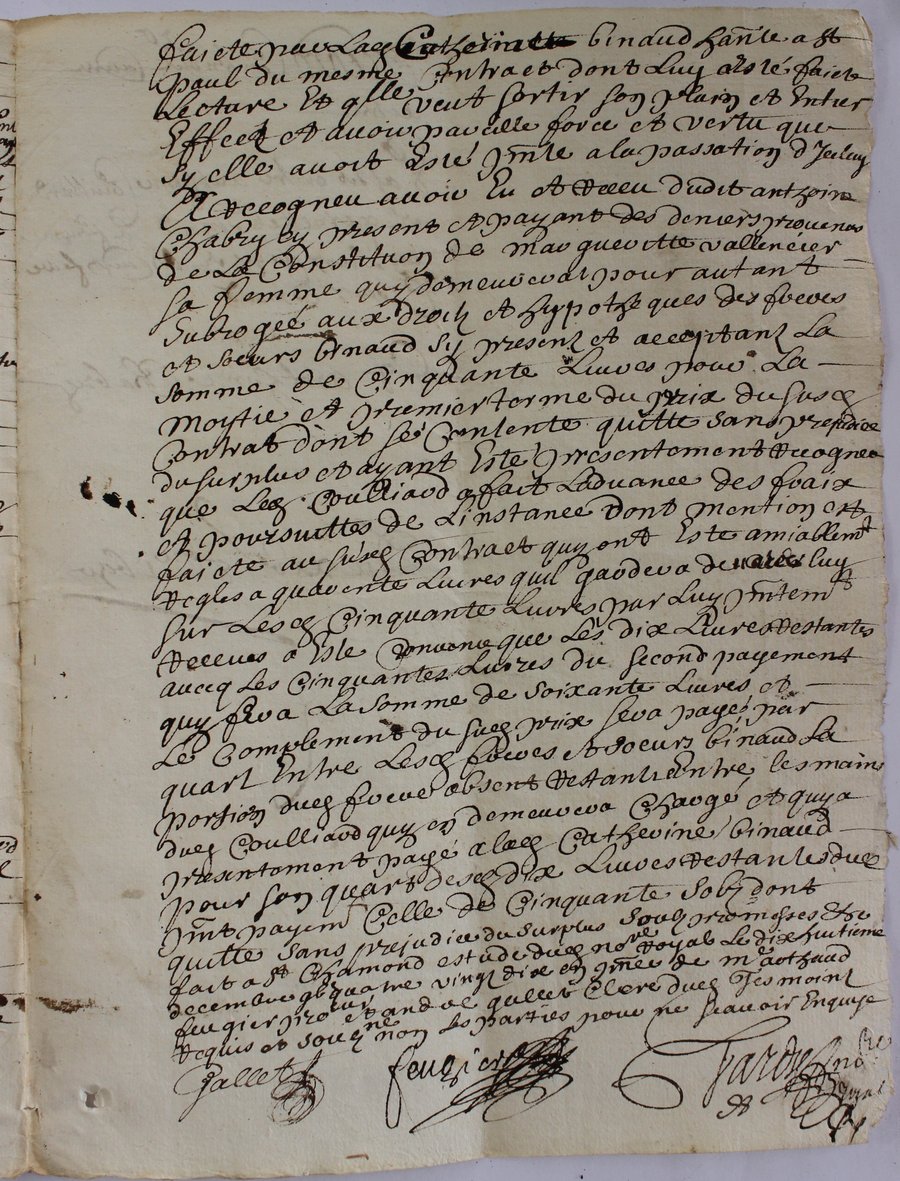 faicte par lad Catherinette binaud hante a St
paul du mesme Contract dont luy a esté faicte
Lecture Et qlle veut sortir son plain et Entier
Effect et avoir pareille force et vertu que
sy elle avoit Esté pnte a la passation d'Iceluy
Et Recogneu avoir Eu et Receu dudit anthoine
Chabry Icy present et payant des deniers provenus
de la Constituon de margueritte vallencier
sa femme quy demeurera pour autant
subrogée aux droictz et hypotheques des freres
et soeurs binaud sy presentz et acceptantz La
somme de Cinquante Livres pour La
moytié et premier terme du prix du susd
Contrat dont se Contente quitte sans prejudice
du surplus et ayant Esté presentement Recogneu
que led Coulliaud a fait Ladvance des fraix
et poursuittes de Linstance dont mention est
faicte au susd Contract quy ont Esté amiablemt
Regles a quarente Livres quil gardera devers luy
sur lesd Cinquante Livres par Luy pntemt
Receues a Este Convenu que Les dix Livres Restantes
avecq Les Cinquantes Livres du second payement
quy fera La somme de soixante Livres et
Le Complement du sud prix sera payé par
quart Entre Lesd freres et soeurs binaud La
portion dud frere absent Restant Entre les mains
dud Coulliaud quy en demeurera Chargé et quy a
presentement payé a lad Catherine binaud
pour son quart desd dix Livres Restantes dud
pnt payemt Celle de Cinquante solz dont
quitte sans prejudice du surplus soubz promesses &a
fait a St Chamond estude dud nore Royal Le dix huitieme
decembre gbi quatre vingt dix en pnce de me
feugier et andré gallet Clerc dud tesmoins
Requis et sougne non les parties pour ne scavoir Enquise
Gallet
feugier
Tardy no Re
Royal